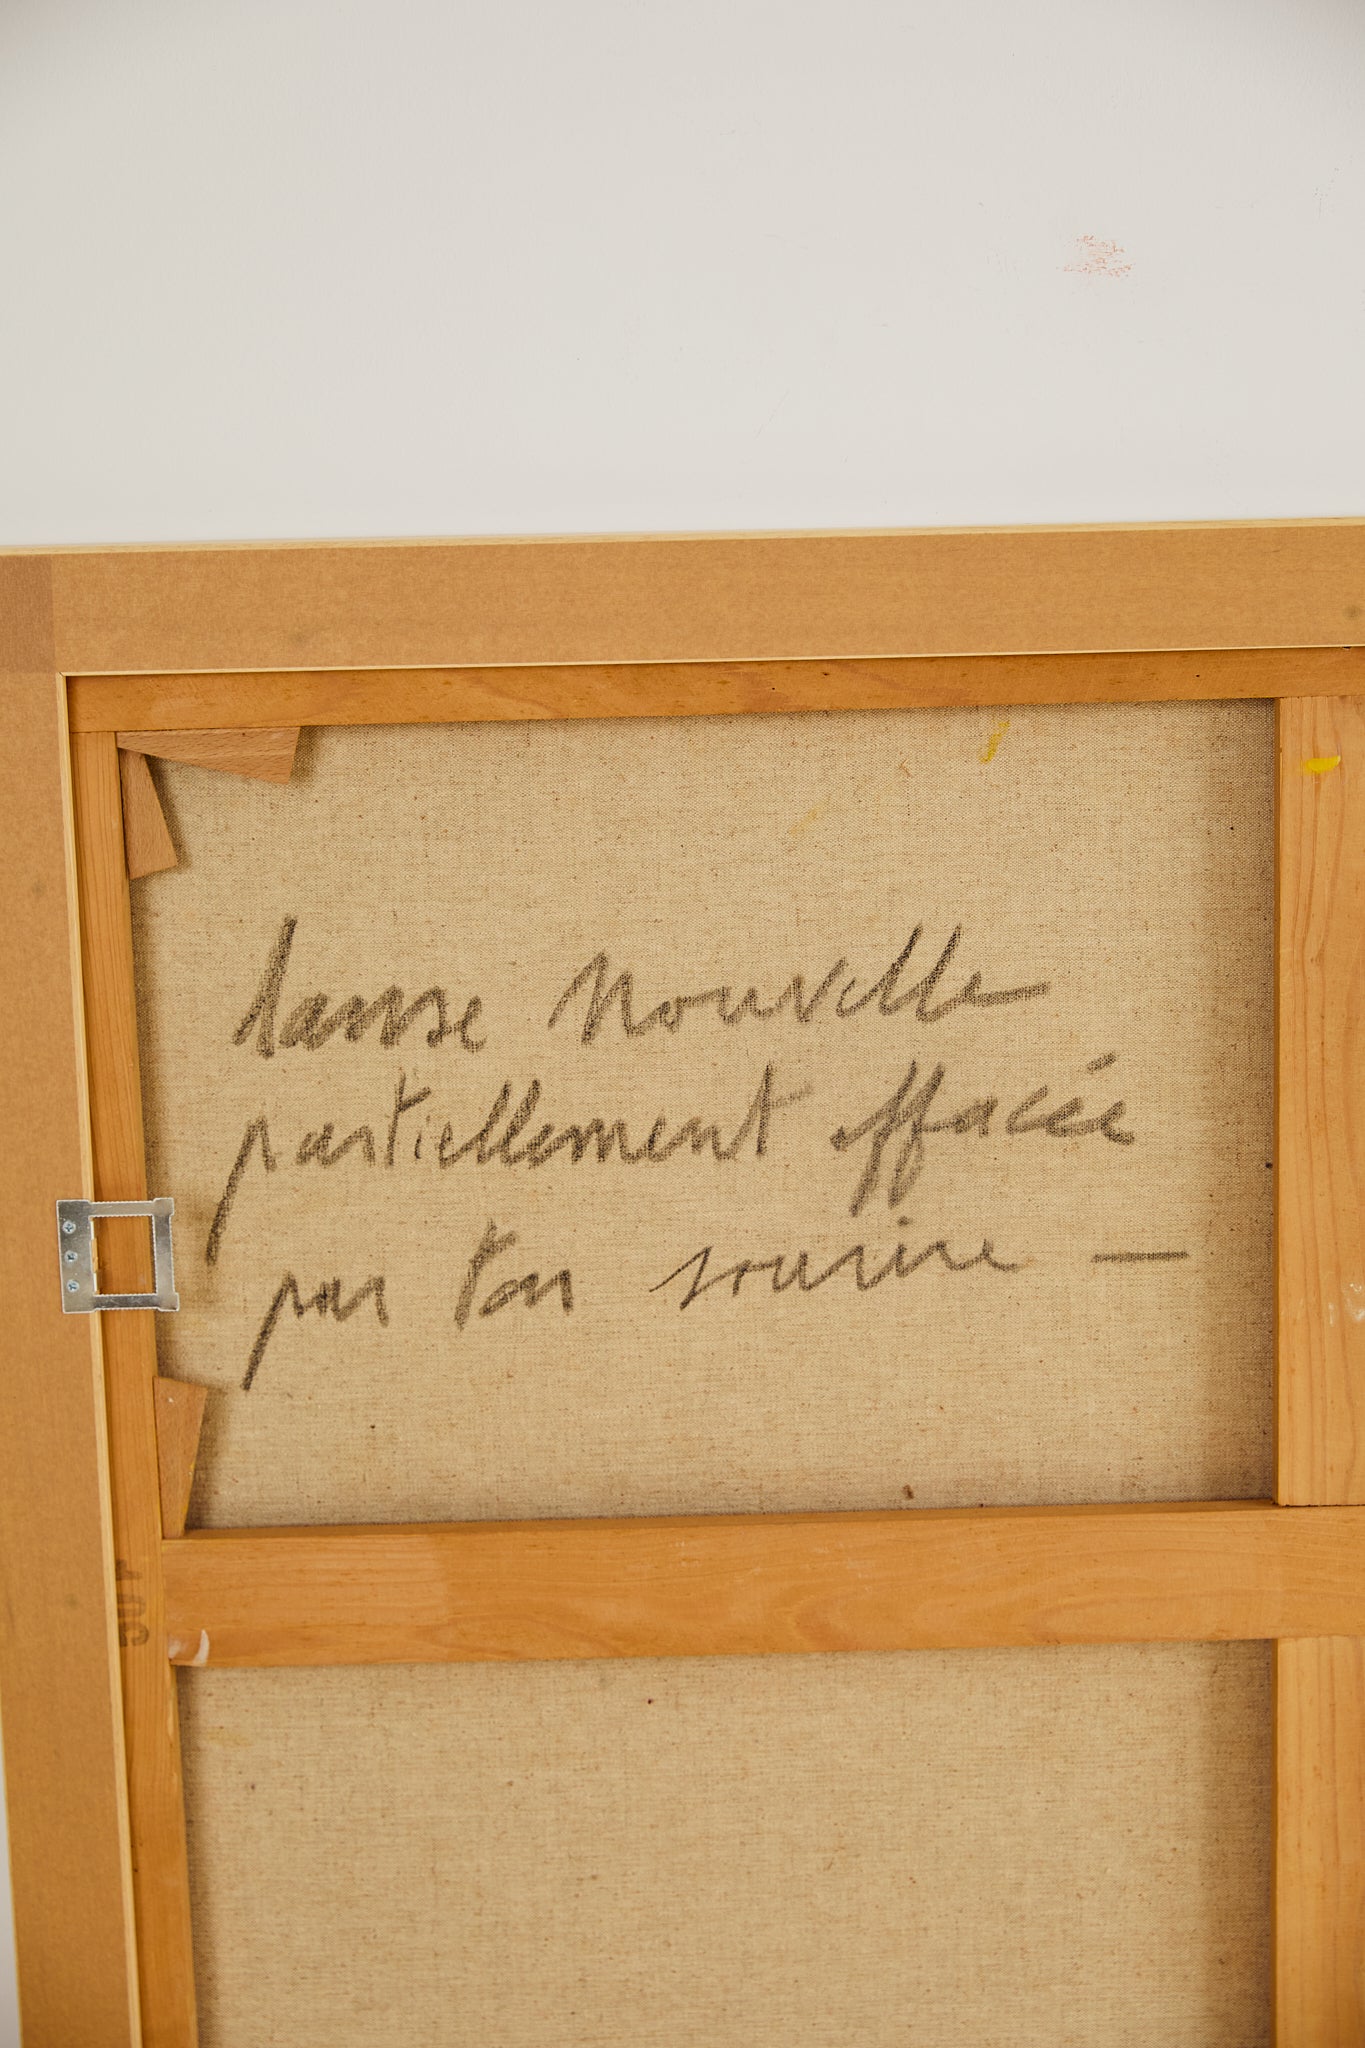 danse nouvelle
partiellement effacée
par ton sourire —